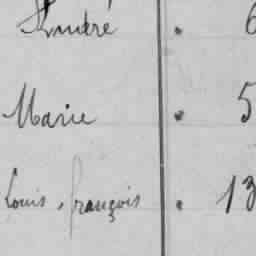 André . 6
Marie . 5
Louis, françois . 13